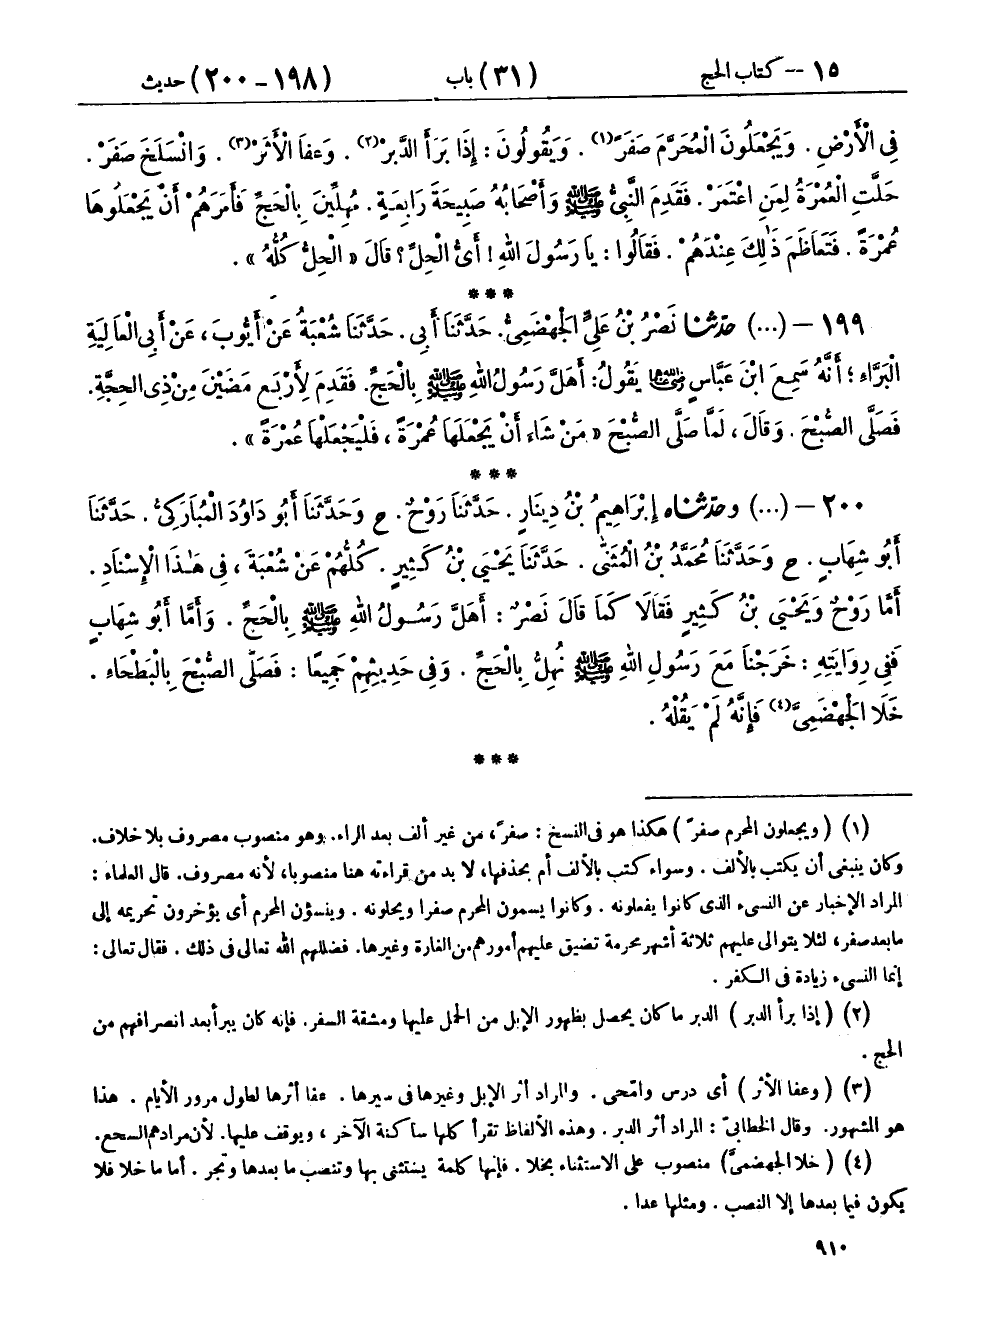 ١٥ -- كتاب الحج (٣١) باب (١٩٨ - ٢٠٠) حديث
فِي الْأَرْضِ . وَيَجْعَلُونَ الْمُحَرَّمَ صَفَرَ(١) . وَيَقُولُونَ : إِذَا بَرَأَ الدَّبَرْ(٢) . وَعَفَا الْأَثَرْ(٣) . وَانْسَلَخَ صَفَرْ .
حَلَّتِ الْعُمْرَةُ لِمَنِ اعْتَمَرْ . فَقَدِمَ النَّبِيُّ ﷺ وَأَصْحَابُهُ صَبِيحَةَ رَابِعَةٍ . مُهِلِّينَ بِالْحَجِّ فَأَمَرَهُمْ أَنْ يَجْعَلُوهَا
عُمْرَةً . فَتَعَاظَمَ ذٰلِكَ عِنْدَهُمْ . فَقَالُوا : يَا رَسُولَ اللهِ ! أَىُّ الْحِلِّ ؟ قَالَ « الْحِلُّ كُلُّهُ » .
***
١٩٩ – (...) حَدَّثَنَا نَصْرُ بْنُ عَلِيٍّ الْجَهْضَمِيُّ . حَدَّثَنَا أَبِي . حَدَّثَنَا شُعْبَةُ عَنْ أَيُّوبَ ، عَنْ أَبِي الْعَالِيَةِ
الْبَرَّاءِ ؛ أَنَّهُ سَمِعَ ابْنَ عَبَّاسٍ رضي الله عنهما يَقُولُ : أَهَلَّ رَسُولُ اللهِ ﷺ بِالْحَجِّ . فَقَدِمَ لِأَرْبَعٍ مَضَيْنَ مِنْ ذِي الْحِجَّةِ .
فَصَلَّى الصُّبْحَ . وَقَالَ ، لَمَّا صَلَّى الصُّبْحَ « مَنْ شَاءَ أَنْ يَجْعَلَهَا عُمْرَةً ، فَلْيَجْعَلْهَا عُمْرَةً » .
***
٢٠٠ – (...) وحَدَّثَنَاه إِبْرَاهِيمُ بْنُ دِينَارٍ . حَدَّثَنَا رَوْحٌ . ح وَحَدَّثَنَا أَبُو دَاوُدَ الْمُبَارَكِيُّ . حَدَّثَنَا
أَبُو شِهَابٍ . ح وَحَدَّثَنَا مُحَمَّدُ بْنُ الْمُثَنَّى . حَدَّثَنَا يَحْيَى بْنُ كَثِيرٍ . كُلُّهُمْ عَنْ شُعْبَةَ ، فِي هٰذَا الْإِسْنَادِ .
أَمَّا رَوْحٌ وَيَحْيَى بْنُ كَثِيرٍ فَقَالَا كَمَا قَالَ نَصْرٌ : أَهَلَّ رَسُولُ اللهِ ﷺ بِالْحَجِّ . وَأَمَّا أَبُو شِهَابٍ
فَفِي رِوَايَتِهِ : خَرَجْنَا مَعَ رَسُولِ اللهِ ﷺ نُهِلُّ بِالْحَجِّ . وَفِي حَدِيثِهِمْ جَمِيعًا : فَصَلَّى الصُّبْحَ بِالْبَطْحَاءِ .
خَلَا الْجَهْضَمِيَّ(٤) فَإِنَّهُ لَمْ يَقُلْهُ .
***
(١) ( ويجعلون المحرم صفرَ ) هكذا هو فى النسخ : صفرَ، من غير ألف بعد الراء. وهو منصوب مصروف بلا خلاف.
وكان ينبغى أن يكتب بالألف . وسواء كتب بالألف أم بحذفها، لا بد من قراءته هنا منصوبا، لأنه مصروف. قال العلماء :
المراد الإخبار عن النسىء الذى كانوا يفعلونه . وكانوا يسمون المحرم صفرا ويحلونه . وينسؤن المحرم أى يؤخرون تحريمه إلى
ما بعد صفر، لئلا يتوالى عليهم ثلاثة أشهر محرمة تضيق عليهم أمورهم من الغارة وغيرها. فضللهم الله تعالى فى ذلك . فقال تعالى :
إنما النسىء زيادة فى الكفر .
(٢) ( إذا برأ الدبر ) الدبر ما كان يحصل بظهور الإبل من الحمل عليها ومشقة السفر. فإنه كان يبرأ بعد انصرافهم من
الحج .
(٣) ( وعفا الأثر ) أى درس وامّحى . والمراد أثر الإبل وغيرها فى سيرها . عفا أثرها لطول مرور الأيام . هذا
هو المشهور. وقال الخطابىّ : المراد أثر الدبر . وهذه الألفاظ تقرأ كلها ساكنة الآخر ، ويوقف عليها. لأن مرادهم السجع.
(٤) ( خلا الجهضمىَّ ) منصوب على الاستثناء بخلا . فإنها كلمة يستثنى بها وتنصب ما بعدها وتجر . أما ما خلا فلا
يكون فيما بعدها إلا النصب . ومثلها عدا .
٩١٠